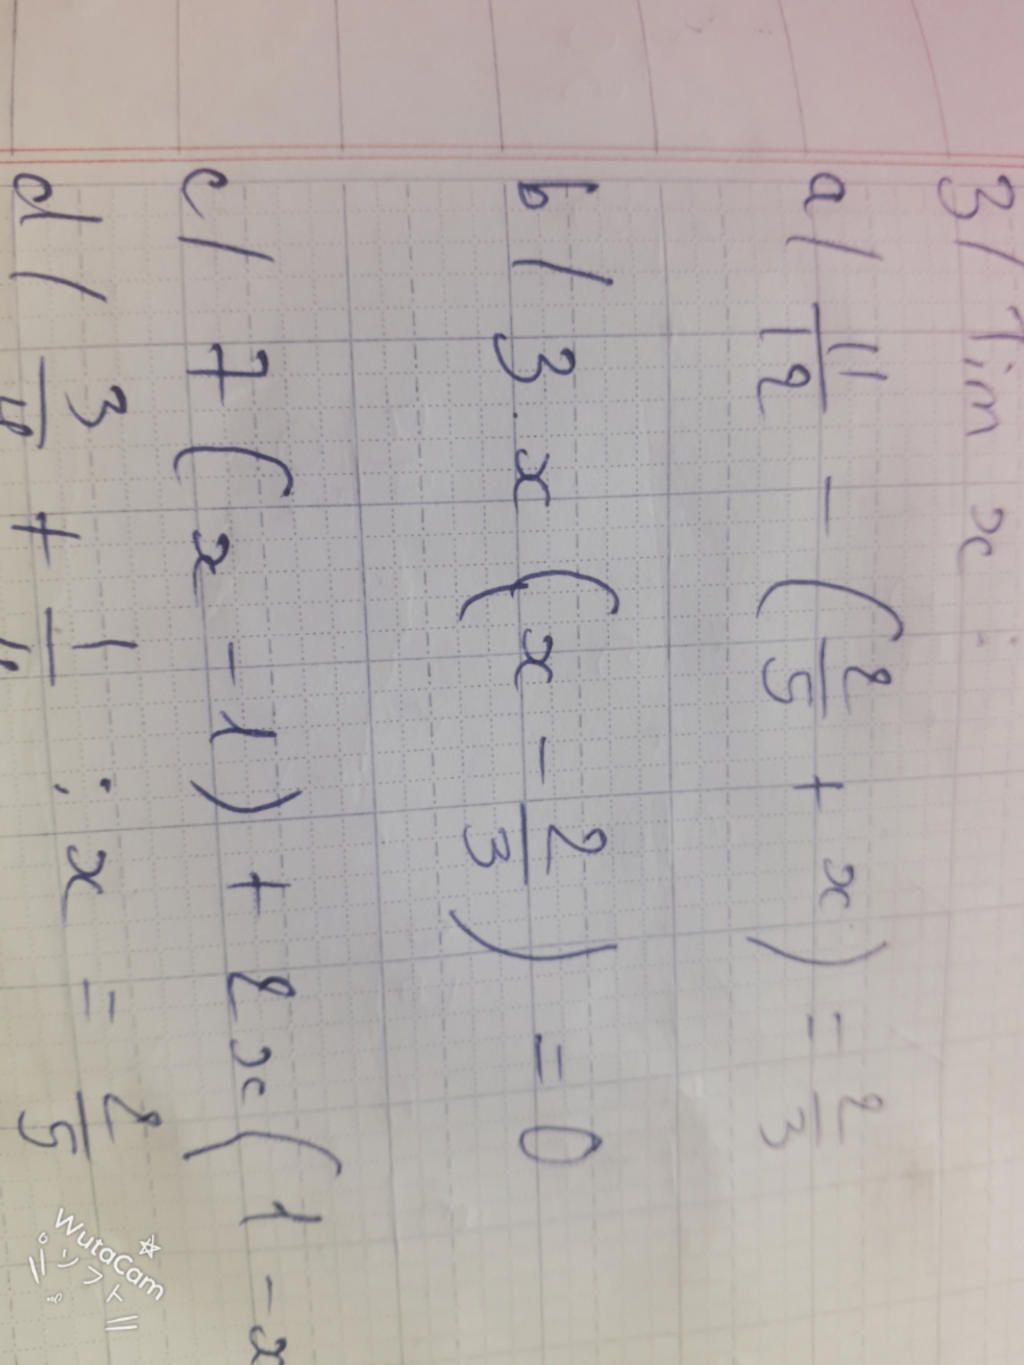 3/ Tìm x :
a/ 11/12 - (2/5 + x) = 2/3
b/ 3.x (x - 2/3) = 0
c/ 7 (x - 1) + 2x (1 - x
d/ 3/4 + 1/4 : x = 2/5
WutaCam
パソフト